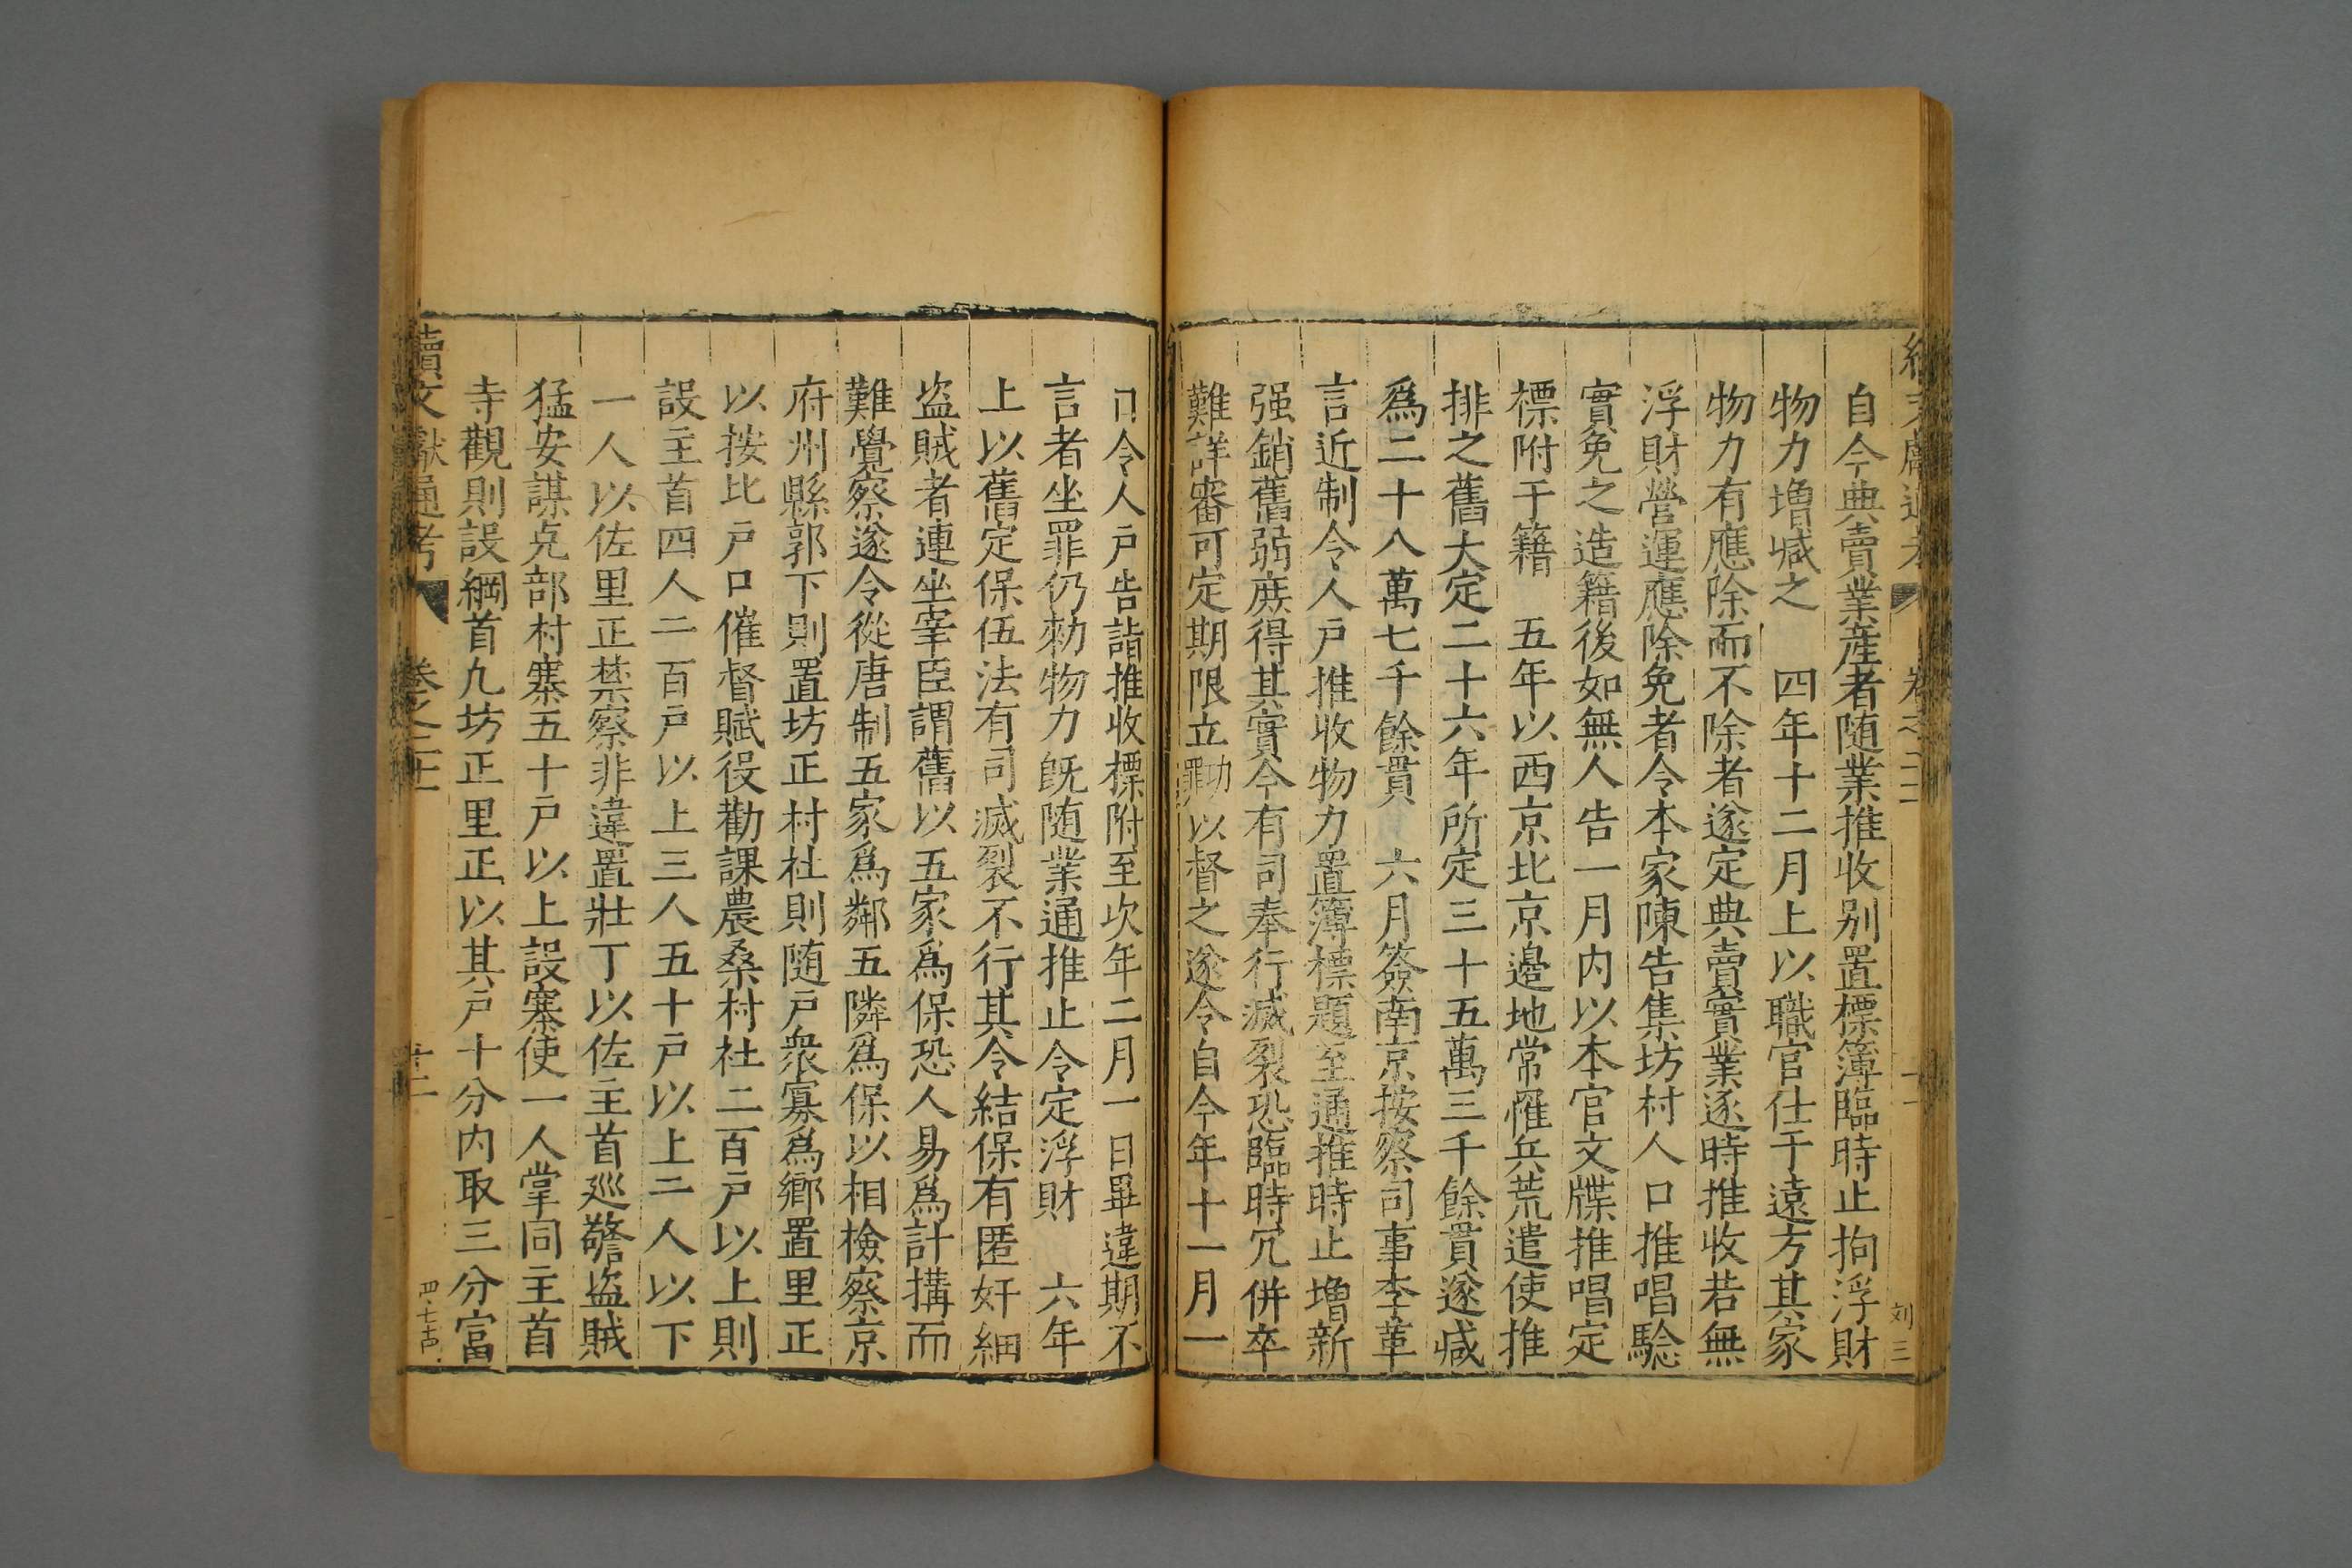 自今典賣業産者随業推收别置標簿臨時止拘浮財
物力增减之　四年十二月上以職官仕于遠方其家
物力有應除而不除者遂定典賣實業逐時推收若無
浮財營運應除免者令本家陳告集坊村人口推唱驗
實免之造籍後如無人告一月内以本官文牒推唱定
標附于籍　五年以西京北京邊地常罹兵荒遣使推
排之舊大定二十六年所定三十五萬三千餘貫遂减
爲二十八萬七千餘貫　六月簽南京按察司事李革
言近制令人戸推收物力置簿標題至通推時止增新
强銷舊弱庶得其實今有司奉行滅裂恐臨時冗併卒
難詳審可定期限立罪以督之遂令自今年十一月一
日令人戸告詣推收標附至次年二月一日畢違期不
言者坐罪仍勑物力既随業通推止令定浮財　六年
上以舊定保伍法有司滅裂不行其令結保有匿奸細
盗賊者連坐宰臣謂舊以五家爲保恐人易爲計搆而
難覺察遂令從唐制五家爲鄰五隣爲保以相檢察京
府州縣郭下則置坊正村社則随戸衆寡爲鄉置里正
以按比戸口催督賦役勸課農桑村社二百戸以上則
設主首四人二百戸以上三人五十戸以上二人以下
一人以佐里正禁察非違置壯丁以佐主首廵警盗賊
猛安謀克部村寨五十戸以上設寨使一人掌同主首
寺觀則設綱首凡坊正里正以其戸十分内取三分富
續文獻通考　卷之二十　十二